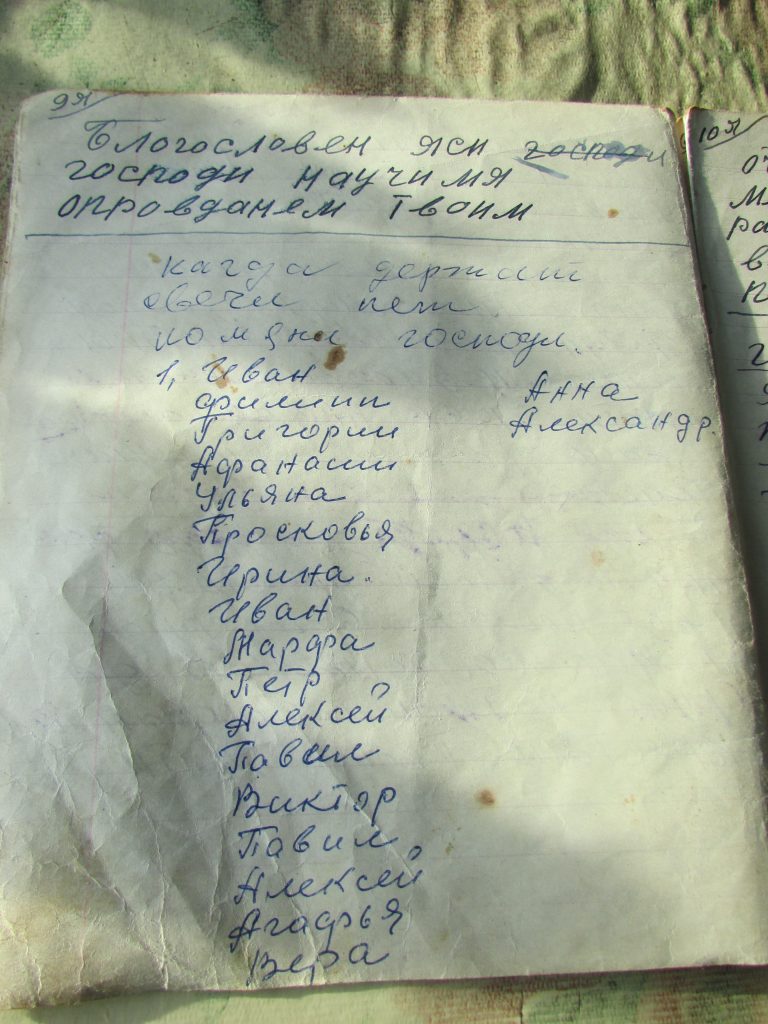 9я
Благословен яси господи
господи научимя
оправданем твоим
кагда держат
свечи пет
помяни господи.
1, Иван
филипп
Григории
Афанасии
Ульяна
Просковья
Ирина.
Иван
Марфа
Петр
Алексей
Павел
Виктор
Павил
Алексей
Агафья
Вера
Анна
Александр.
10я